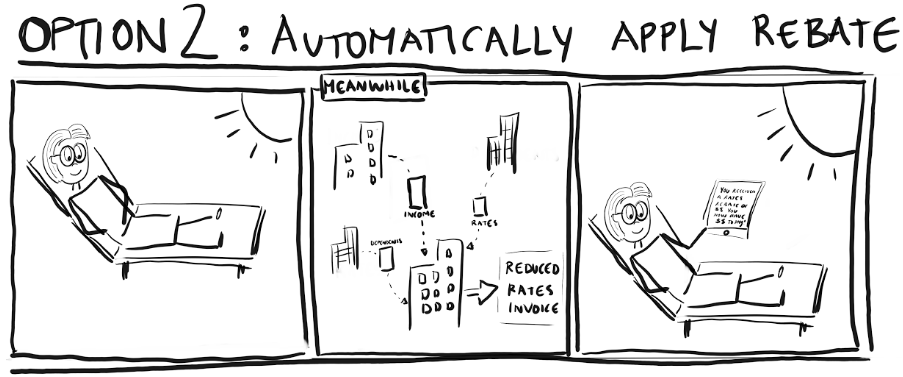 OPTION 2 : AUTOMATICALLY APPLY REBATE
MEANWHILE
INCOME
RATES
DEPENDANTS
REDUCED
RATES
INVOICE
YOU RECEIVED
A RATES
REBATE OF
$$ YOU
NOW HAVE
$$ TO PAY"